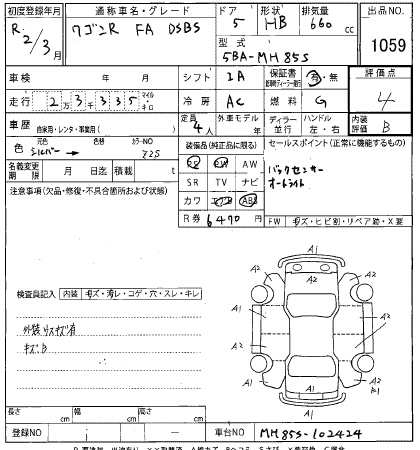 初度登録年月 通称車名・グレード ドア 形状 排気量 出品NO
R. 2/3月 ワゴンR FA DSBS 5 HB 660cc 1059
型式 5BA-MH85S
車検 年 月 シフト IA 保証書 有・無 評価点
走行 2万3千335 マイル・キロ 冷房 AC 燃料 G 4
車歴 自家用・レンタ・事業用( ) 定員 4人 外車モデル 年 ディーラー 並行 ハンドル 左・右 内装評価 B
色 元色 シルバー → 色替 カラーNO Z2S 装備品(純正品に限る) セールスポイント(正常に機能するもの)
PS PW SR TV ナビ カワ エアB ABS
バックセンサー
オートライト
名義変更期限 月 日 積載 t
R券 6470円 FW キズ・ヒビ割・リペア跡・X要
注意事項(欠品・修復・不具合箇所および状態)
検査員記入 内装 キズ・汚レ・コゲ・穴・スレ・キレ
外装 ウスキズ有
キズB
A1
A2 A2
A1 A2 A1
A2
A2
A1
長さ cm 幅 cm 高さ cm
登録NO 車台NO MH85S-102424